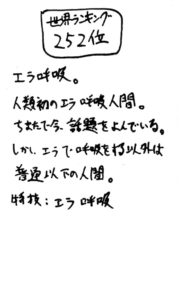 世界ランキング
252位
エラ呼吸。
人類初のエラ呼吸人間。
ちまたで今、話題をよんでいる。
しかし、エラで呼吸をする以外は
普通以下の人間。
特技：エラ呼吸